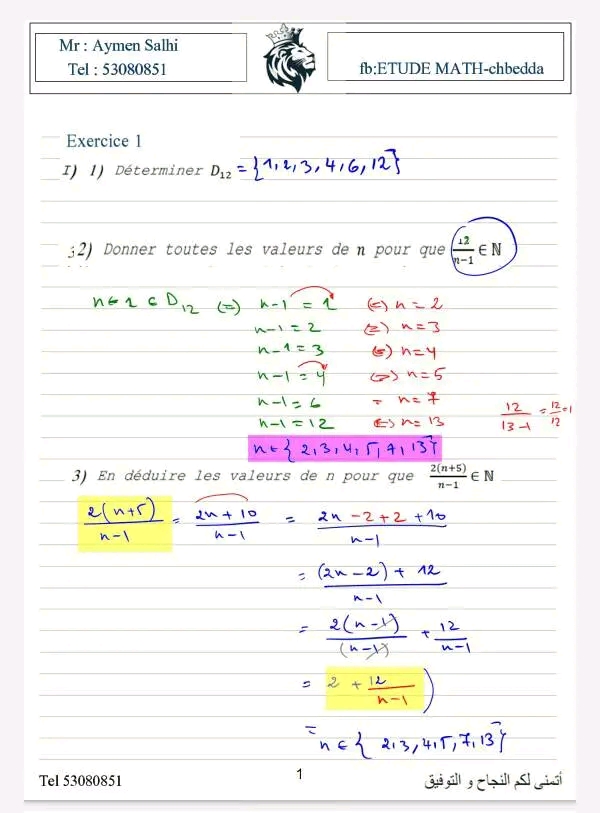 Mr : Aymen Salhi
Tel : 53080851
fb:ETUDE MATH-chbedda
Exercice 1
I) 1) Déterminer D₁₂ = {1, 2, 3, 4, 6, 12}
2) Donner toutes les valeurs de n pour que 12/(n-1) ∈ ℕ
n-1 ∈ D₁₂ (=) n-1 = 1 (=) n = 2
n-1 = 2 (=) n = 3
n-1 = 3 (=) n = 4
n-1 = 4 (=) n = 5
n-1 = 6 = n = 7
n-1 = 12 (=) n = 13
12/(13-1) = 12/12 = 1
n ∈ { 2, 3, 4, 5, 7, 13}
3) En déduire les valeurs de n pour que 2(n+5)/(n-1) ∈ ℕ
2(n+5)/(n-1) = (2n+10)/(n-1) = (2n -2+2 +10)/(n-1)
= ((2n-2) + 12)/(n-1)
= 2(n-1)/(n-1) + 12/(n-1)
= 2 + 12/(n-1) )
= n ∈ { 2, 3, 4, 5, 7, 13}
Tel 53080851
1
أتمنى لكم النجاح و التوفيق